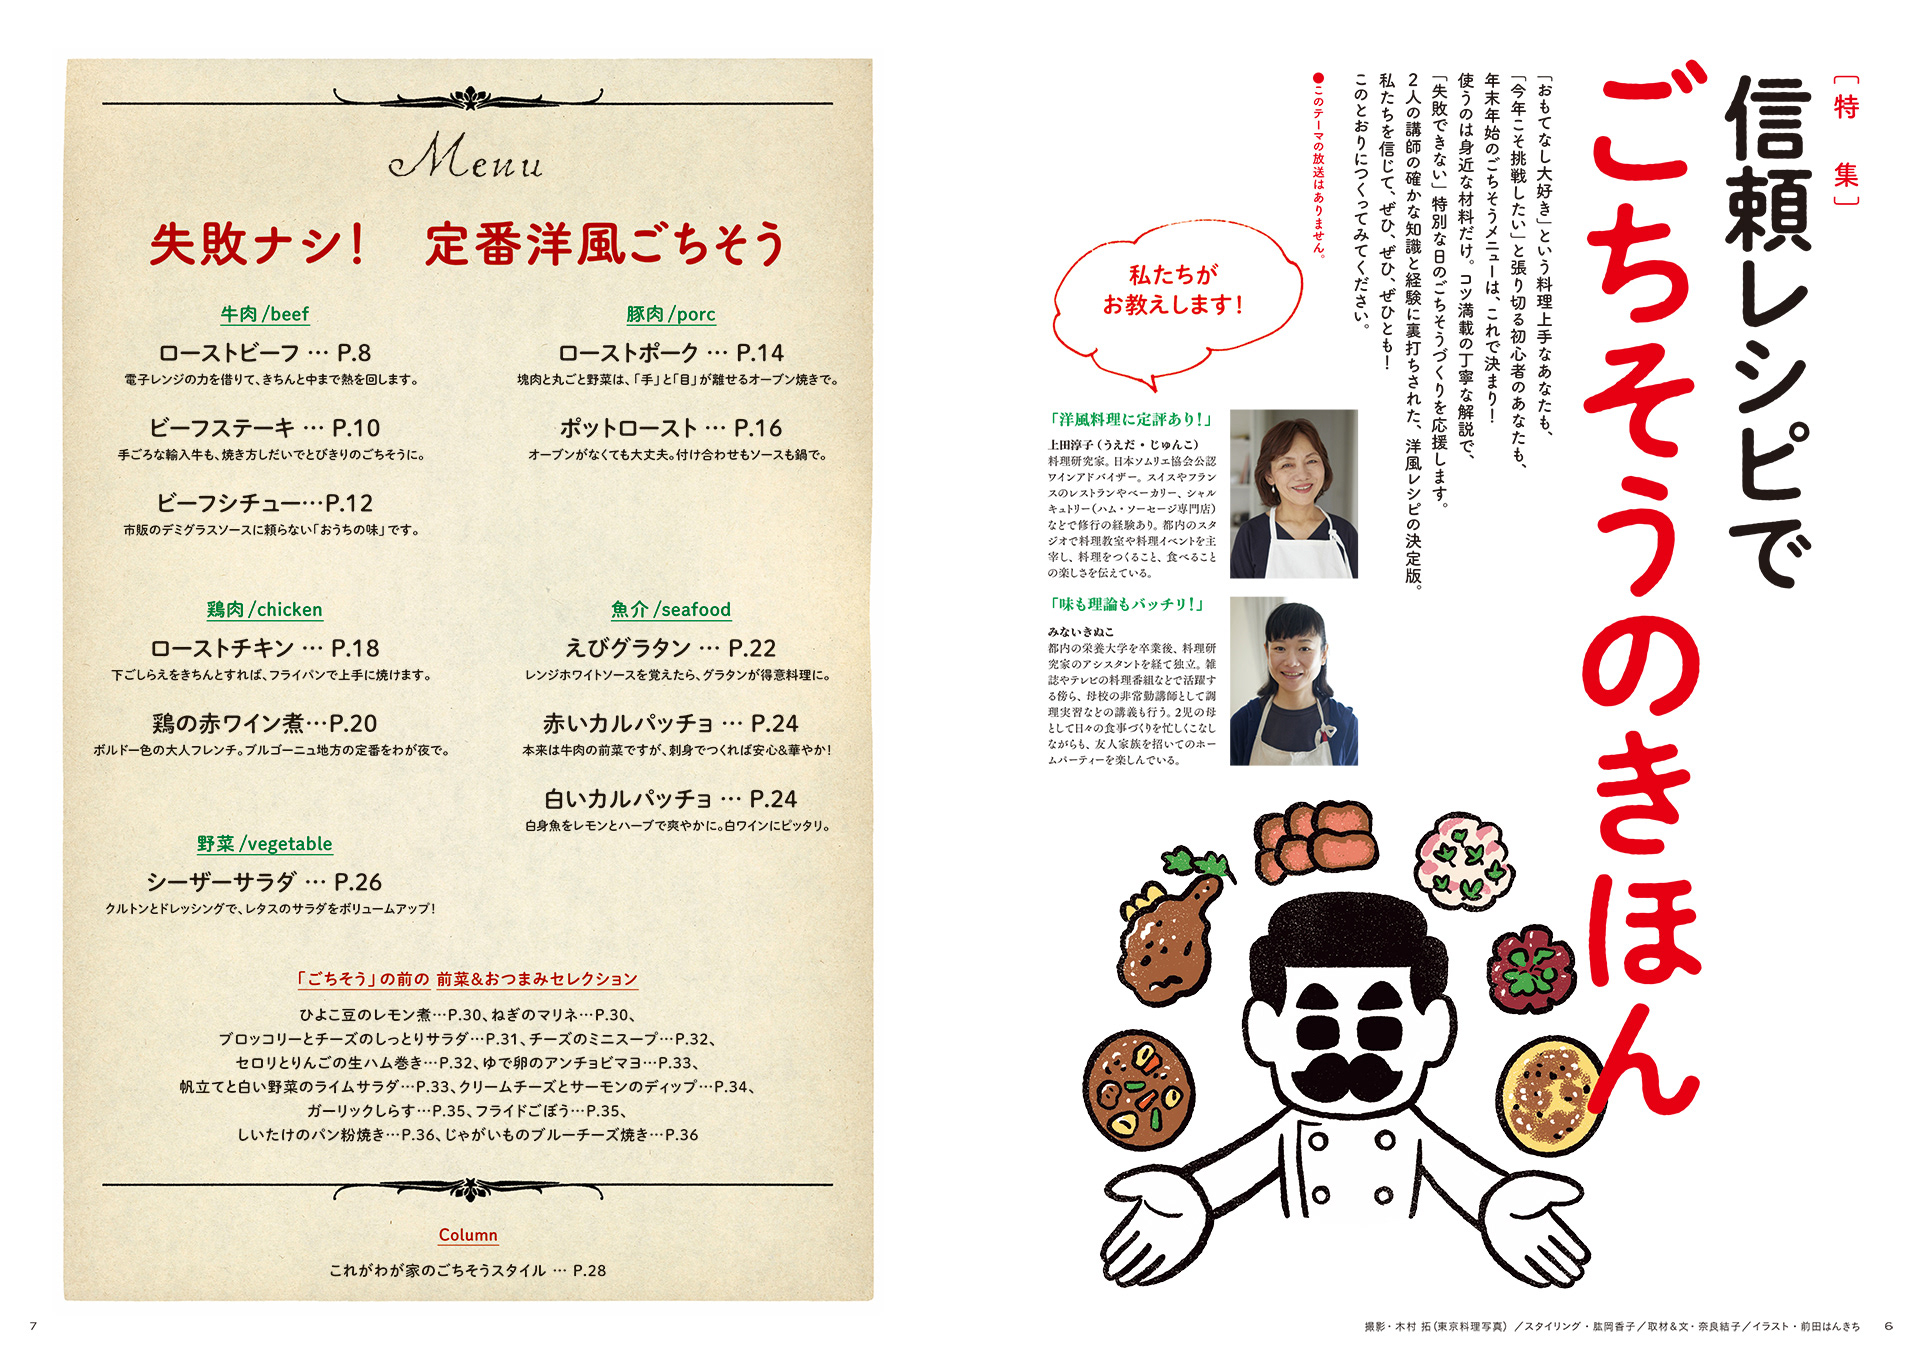 ［特　集］
信頼レシピで
ごちそうのきほん
「おもてなし大好き」という料理上手なあなたも、
「今年こそ挑戦したい」と張り切る初心者のあなたも、
年末年始のごちそうメニューは、これで決まり！
使うのは身近な材料だけ。コツ満載の丁寧な解説で、
「失敗できない」特別な日のごちそうづくりを応援します。
2人の講師の確かな知識と経験に裏打ちされた、洋風レシピの決定版。
私たちを信じて、ぜひ、ぜひ、ぜひとも！
このとおりにつくってみてください。
●このテーマの放送はありません。
私たちが
お教えします！
「洋風料理に定評あり！」
上田淳子（うえだ・じゅんこ）
料理研究家。日本ソムリエ協会公認
ワインアドバイザー。スイスやフラン
スのレストランやベーカリー、シャル
キュトリー（ハム・ソーセージ専門店）
などで修行の経験あり。都内のスタ
ジオで料理教室や料理イベントを主
宰し、料理をつくること、食べること
の楽しさを伝えている。
「味も理論もバッチリ！」
みないきぬこ
都内の栄養大学を卒業後、料理研
究家のアシスタントを経て独立。雑
誌やテレビの料理番組などで活躍す
る傍ら、母校の非常勤講師として調
理実習などの講義も行う。2児の母
として日々の食事づくりを忙しくこなし
ながらも、友人家族を招いてのホー
ムパーティーを楽しんでいる。
撮影・木村 拓（東京料理写真）／スタイリング・肱岡香子／取材＆文・奈良結子／イラスト・前田はんきち
6
Menu
失敗ナシ！　定番洋風ごちそう
牛肉/beef
ローストビーフ … P.8
電子レンジの力を借りて、きちんと中まで熱を回します。
ビーフステーキ … P.10
手ごろな輸入牛も、焼き方しだいでとびきりのごちそうに。
ビーフシチュー…P.12
市販のデミグラスソースに頼らない「おうちの味」です。
豚肉/porc
ローストポーク … P.14
塊肉と丸ごと野菜は、「手」と「目」が離せるオーブン焼きで。
ポットロースト … P.16
オーブンがなくても大丈夫。付け合わせもソースも鍋で。
鶏肉/chicken
ローストチキン … P.18
下ごしらえをきちんとすれば、フライパンで上手に焼けます。
鶏の赤ワイン煮…P.20
ボルドー色の大人フレンチ。ブルゴーニュ地方の定番をわが夜で。
魚介/seafood
えびグラタン … P.22
レンジホワイトソースを覚えたら、グラタンが得意料理に。
赤いカルパッチョ … P.24
本来は牛肉の前菜ですが、刺身でつくれば安心＆華やか！
白いカルパッチョ … P.24
白身魚をレモンとハーブで爽やかに。白ワインにピッタリ。
野菜/vegetable
シーザーサラダ … P.26
クルトンとドレッシングで、レタスのサラダをボリュームアップ！
「ごちそう」の前の 前菜＆おつまみセレクション
ひよこ豆のレモン煮…P.30、ねぎのマリネ…P.30、
ブロッコリーとチーズのしっとりサラダ…P.31、チーズのミニスープ…P.32、
セロリとりんごの生ハム巻き…P.32、ゆで卵のアンチョビマヨ…P.33、
帆立てと白い野菜のライムサラダ…P.33、クリームチーズとサーモンのディップ…P.34、
ガーリックしらす…P.35、フライドごぼう…P.35、
しいたけのパン粉焼き…P.36、じゃがいものブルーチーズ焼き…P.36
Column
これがわが家のごちそうスタイル … P.28
7